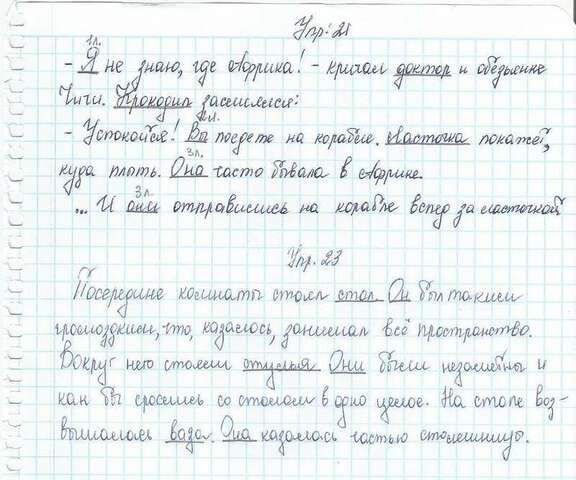 Упр. 21
1л.
- Я не знаю, где Африка! - кричал доктор и обезьянке
Чичи. Крокодил засмеялся:
2л.
- Успокойся! Вы поедете на корабле. Ласточка покажет,
3л.
куда плыть. Она часто бывала в Африке.
3л.
... И они отправились на корабле вслед за ласточкой
Упр. 23
Посередине комнаты стоял стол. Он был таким
громоздким, что, казалось, занимал всё пространство.
Вокруг него стояли стулья. Они были незаметны и
как бы срослись со столом в одно целое. На столе воз-
вышалась ваза. Она казалась частью столешницы.